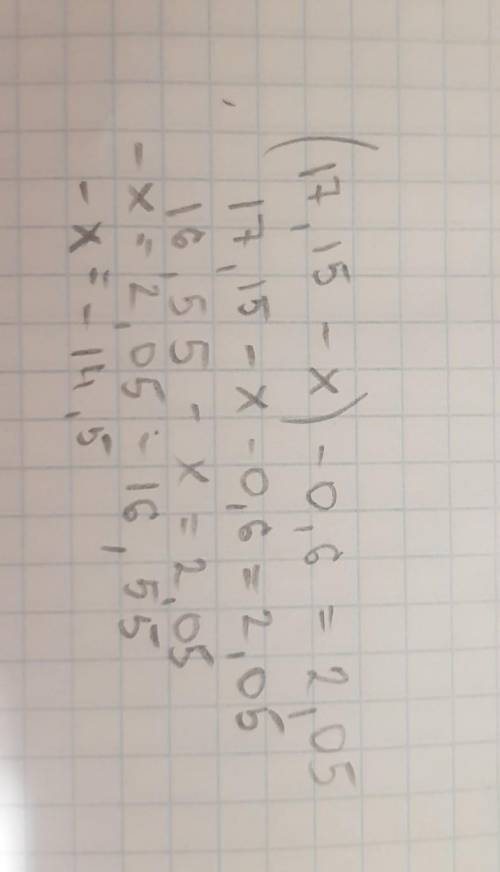 (17,15 - x) - 0,6 = 2,05
17,15 - x - 0,6 = 2,05
16,55 - x = 2,05
-x = 2,05 - 16,55
-x = -14,5